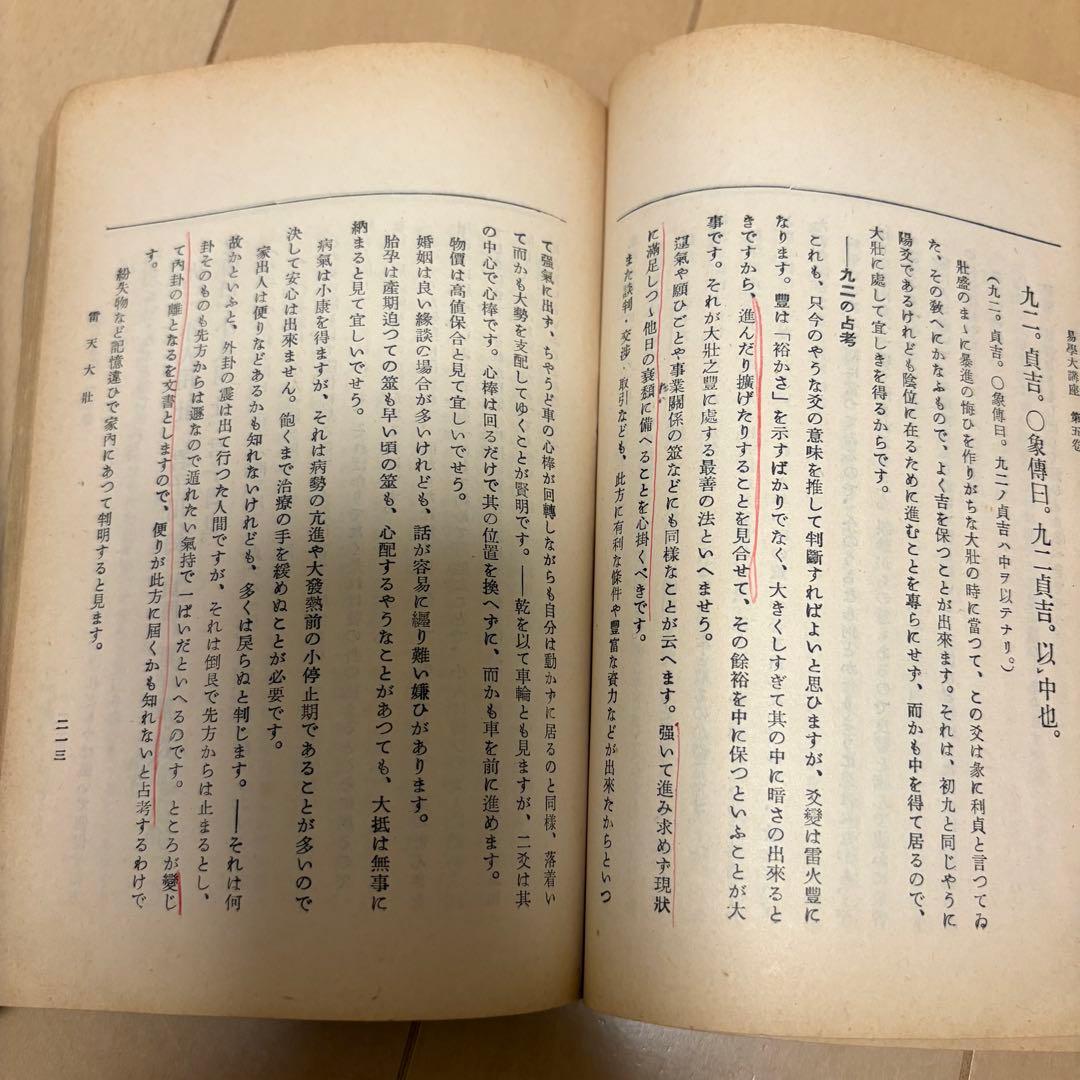 易學大講座 第五卷
九二。貞吉。〇象傳曰。九二貞吉。以中也。
(九二。貞吉。〇象傳曰。九二ノ貞吉ハ中ヲ以テナリ。)
壯盛のまゝに暴進の悔ひを作りがちな大壯の時に當つて、この爻は彖に利貞と言つてゐ
た、その敎へにかなふもので、よく吉を保つことが出來ます。それは、初九と同じやうに
陽爻であるけれども陰位に在るために進むことを專らにせず、而かも中を得て居るので、
大壯に處して宜しきを得るからです。
――九二の占考
これも、只今のやうな爻の意味を推して判斷すればよいと思ひますが、爻變は雷火豐に
なります。豐は「裕かさ」を示すばかりでなく、大きくしすぎて其の中に暗さの出來ると
きですから、進んだり擴げたりすることを見合せて、その餘裕を中に保つといふことが大
事です。それが大壯之豐に處する最善の法といへませう。
運氣や願ひごとや事業關係の筮などにも同樣なことが云へます。强いて進み求めず現狀
に滿足しつゝ他日の衰頽に備へることを心掛くべきです。
また談判・交渉・取引なども、此方に有利な條件や豐富な資力などが出來たからといつ
て强氣に出ず、ちやうど車の心棒が回轉しながらも自分は動かずに居るのと同樣、落着い
て而かも大勢を支配してゆくことが賢明です。――乾を以て車輪とも見ますが、二爻は其
の中心で心棒です。心棒は回るだけで其の位置を換へずに、而かも車を前に進めます。
物價は高値保合と見て宜しいでせう。
婚姻は良い緣談の場合が多いけれども、話が容易に纒り難い嫌ひがあります。
胎孕は產期迫つての筮も早い頃の筮も、心配するやうなことがあつても、大抵は無事に
納まると見て宜しいでせう。
病氣は小康を得ますが、それは病勢の亢進や大發熱前の小停止期であることが多いので
決して安心は出來ません。飽くまで治療の手を緩めぬことが必要です。
家出人は便りなどあるかも知れないけれども、多くは戾らぬと判じます。――それは何
故かといふと、外卦の震は出て行つた人間ですが、それは倒艮で先方からは止まるとし、
卦そのものも先方からは遯なので遁れたい氣持で一ぱいだといへるのです。ところが變じ
て內卦の離となるを文書としますので、便りが此方に屆くかも知れないと占考するわけで
す。
紛失物など記憶違ひで家內にあつて判明すると見ます。
雷天大壯
二一三